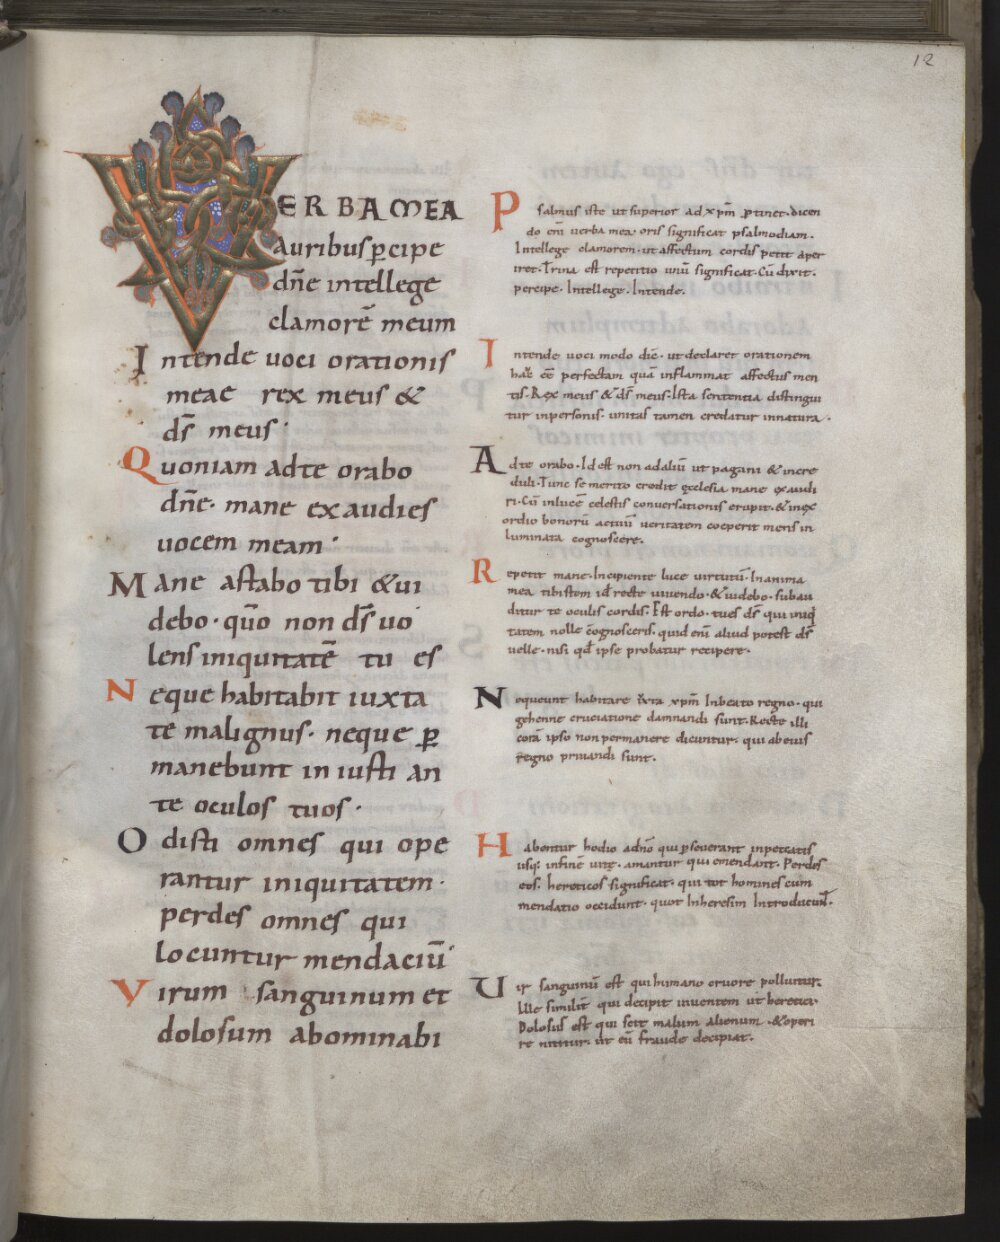 12
VERBA MEA
auribus ꝑcipe
dñe intellege
clamorē meum
Intende uoci orationis
meae rex meus &
d̄s meus·
Quoniam ad te orabo
dñe· mane exaudies
uocem meam·
Mane astabo tibi &ui
debo· quō non d̄s uo
lens iniquitatē tu es
Neque habitabit iuxta
te malignus· neque ꝑ
manebunt iniusti an
te oculos tuos·
Odisti omnes qui ope
rantur iniquitatem·
perdes omnes qui
locuntur mendaciū·
Virum sanguinum et
dolosum abominabi
Psalmus iste ut superior ad xp̄m ꝑtinet· dicen
do enī uerba mea· oris significat psalmodiam·
Intellege clamorem· ut affectum cordis petit aper
iret· Trina est repetitio unū significat· Cū dixit·
percipe· Intellege· Intende·
Intende uoci modo dic̄· ut declaret orationem
hāc eē perfectam quā inflammat affectus men
tis· Rex meus & d̄s meus· Ista sententia distingui
tur in personis· unitas tamen credatur in natura·
Ad te orabo· Id est non ad aliū ut pagani & incre
duli· Tunc se merito credit ęcclesia mane exaudi
ri· Cū in lucē celestis conuersationis erupit· & in ex
ordio bonorū actuū ueritatem coeperit mens in
luminata cognoscere·
Repetit mane· Incipiente luce uirtutū· In anima
mea tibi stem id̄ recte uiuendo· & uidebo· subau
ditur te oculis cordis· Est ordo· tu es d̄s qui iniq̄
tatem nolle cognosceris· quid enī aliud potest d̄s
uelle· nisi qd̄ ipse probatur recipere·
Nequeunt habitare ix̄ta xp̄m In beato regno· qui
gehenne cruciatione damnandi sunt· Recte illi
corā ipso non permanere dicuntur· qui ab eius
regno priuandi sunt·
Habentur hodio a dn̄o qui ꝑseuerant in peccatis
usq; in finē uitę· amantur qui emendant· Perdes
eos· hereticos significat· qui tot homines cum
mendatio occidunt· quot In heresim Introducunt·
Uir sanguinū est qui humano cruore polluitur·
Ille similit̄ qui decipit uiuentem ut heretici·
Dolosus est qui scit malum alienum· & operi
re nititur· ut eū fraude decipiat·